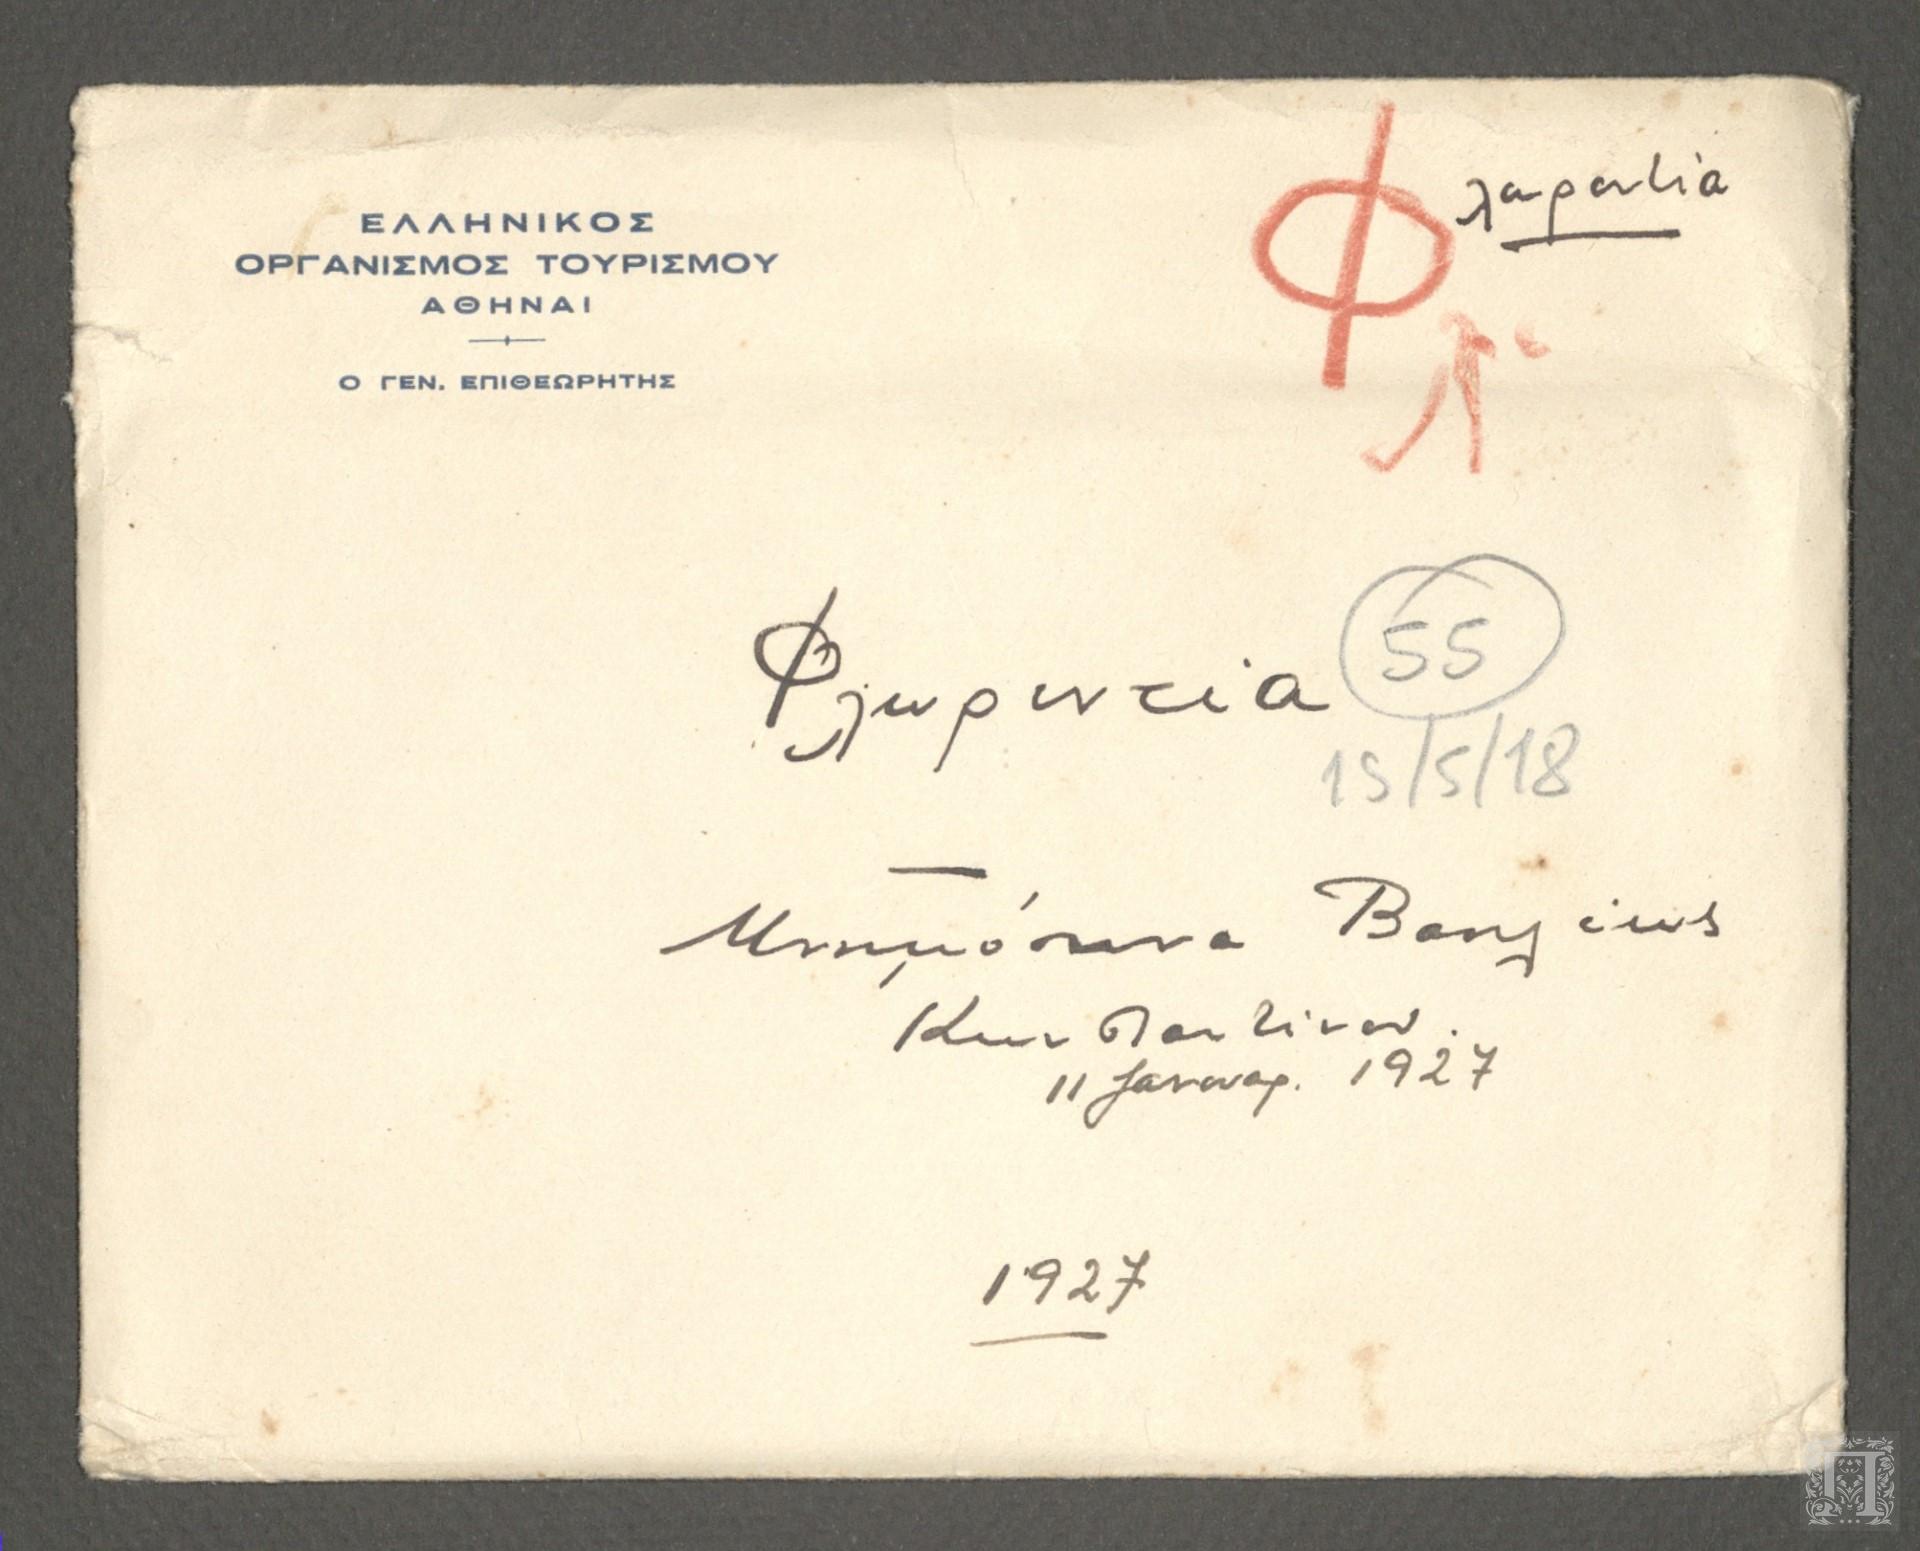 ΕΛΛΗΝΙΚΟΣ
ΟΡΓΑΝΙΣΜΟΣ ΤΟΥΡΙΣΜΟΥ
ΑΘΗΝΑΙ
Ο ΓΕΝ. ΕΠΙΘΕΩΡΗΤΗΣ
Φλωρεντία
Λ
Φλωρεντία
55
15/5/18
Μνημόσυνα Βασιλέως
Κωνσταντίνου.
11 Ιανουαρ. 1927
1927